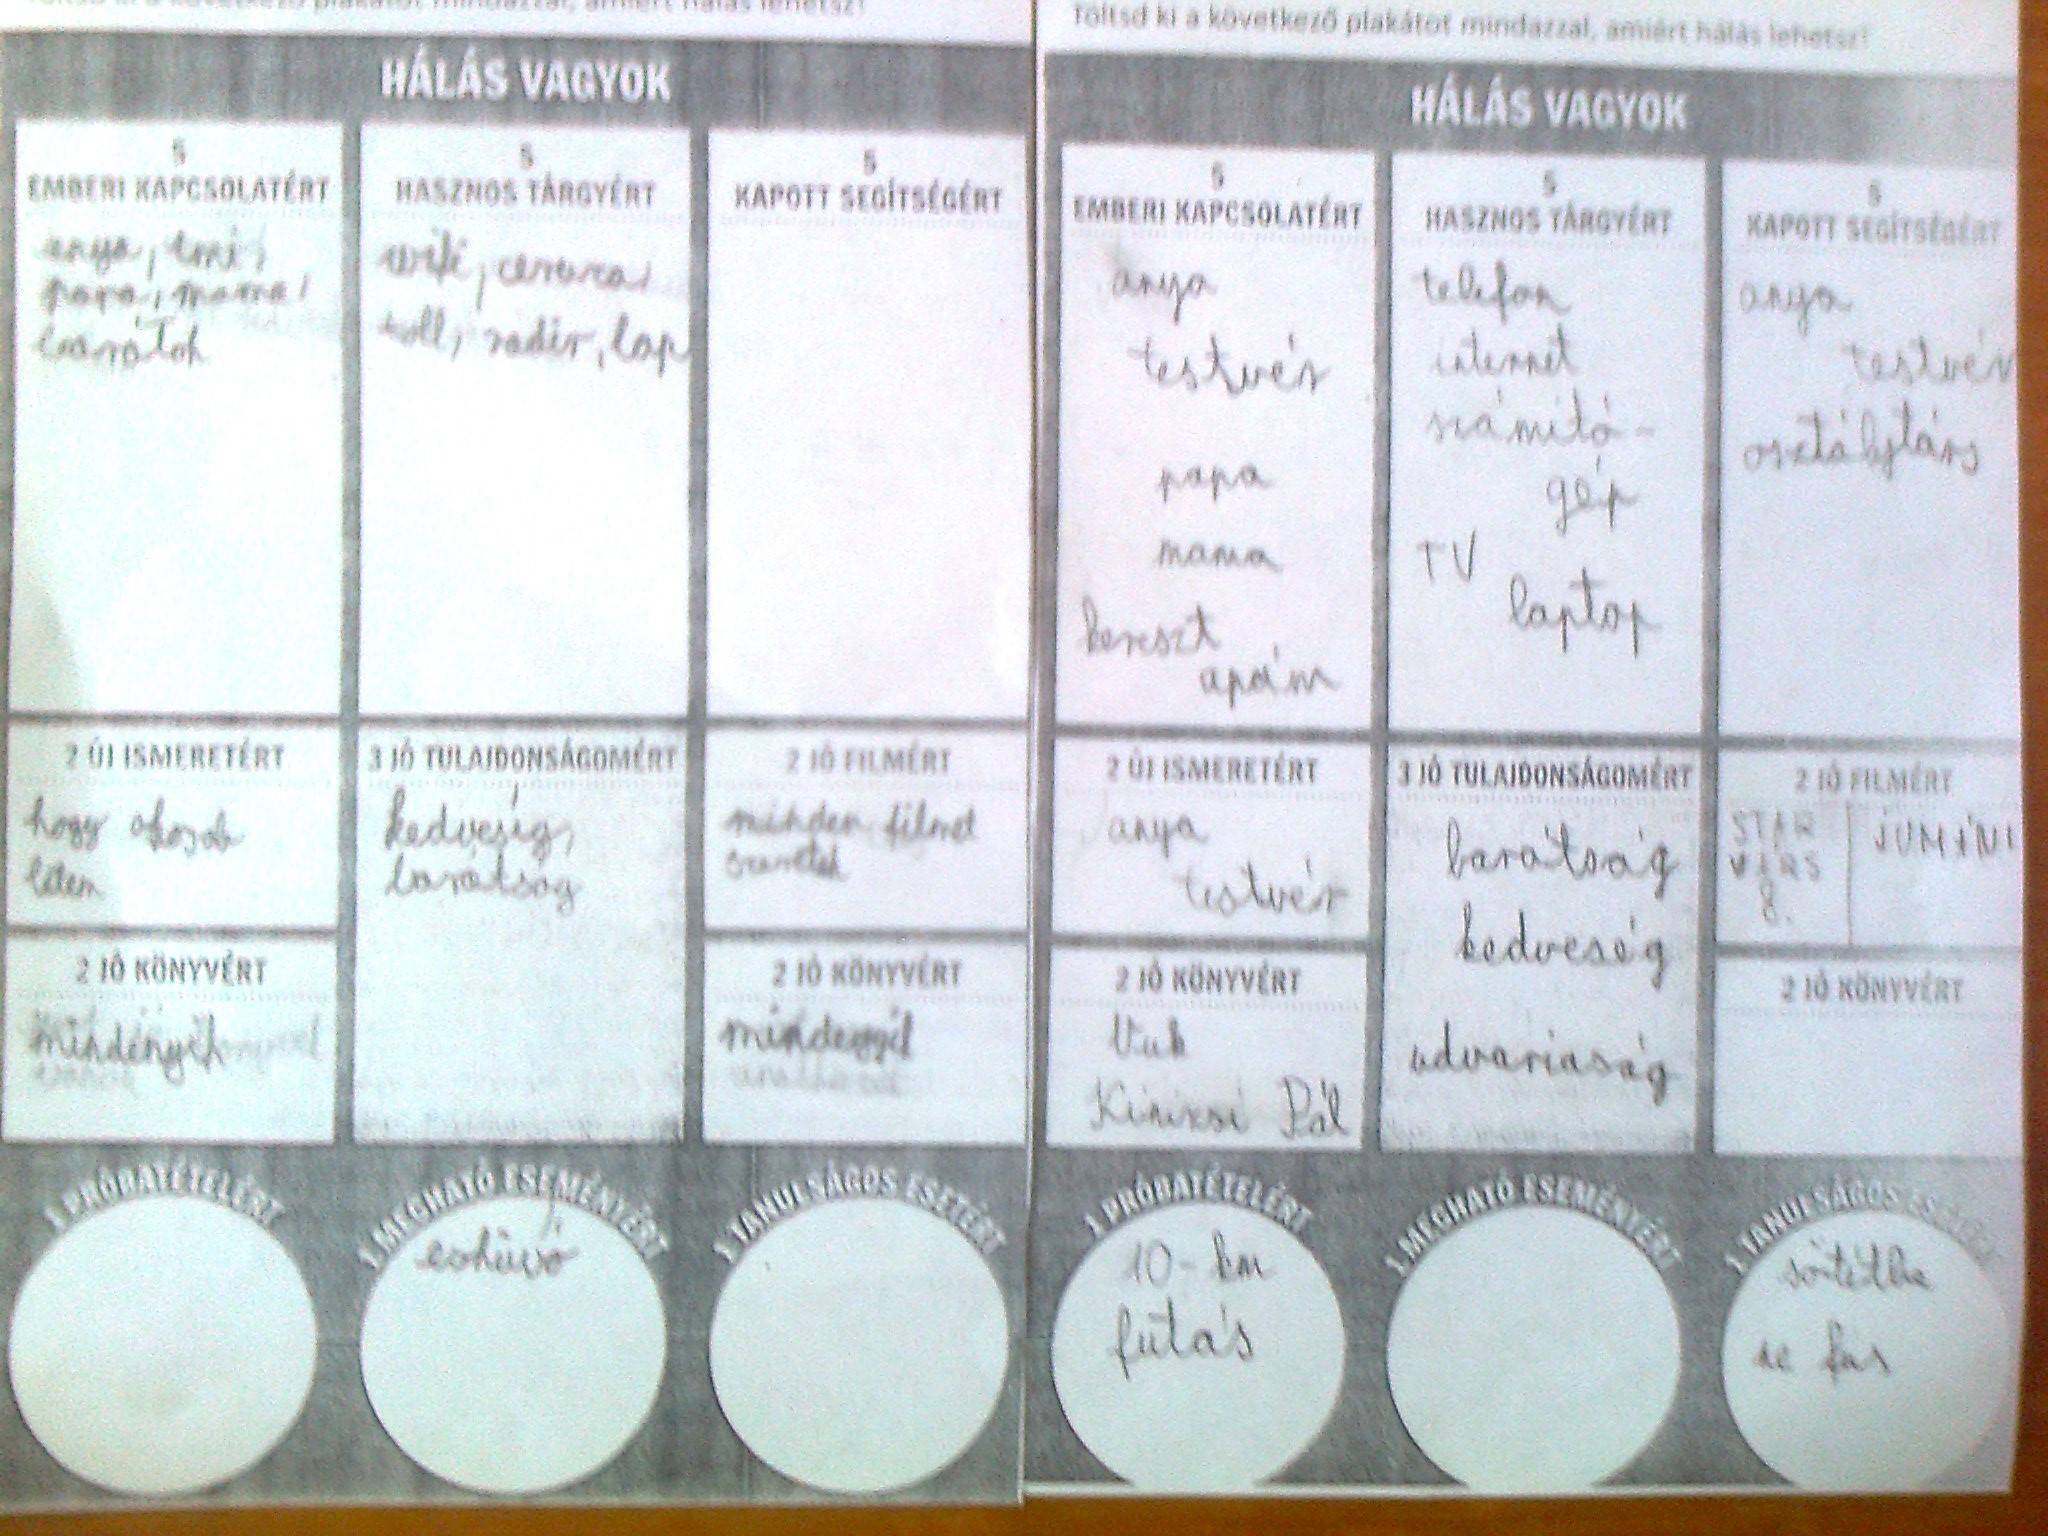 Töltsd ki a következő plakátot mindazzal, amiért hálás lehetsz!
HÁLÁS VAGYOK
5
EMBERI KAPCSOLATÉRT
anya,
papa, mama,
barátok
5
HASZNOS TÁRGYÉRT
ceruza,
toll, radír, lap
5
KAPOTT SEGÍTSÉGÉRT
2 ÚJ ISMERETÉRT
hogy okosab
letem
3 JÓ TULAJDONSÁGOMÉRT
kedveség,
barátság
2 JÓ FILMÉRT
minden filmet
szeretek
2 JÓ KÖNYVÉRT
mindényik
2 JÓ KÖNYVÉRT
mindegyik
1 PRÓBATÉTELÉRT
1 MEGHATÓ ESEMÉNYÉRT
eskűvő
1 TANULSÁGOS ESETÉRT
Töltsd ki a következő plakátot mindazzal, amiért hálás lehetsz!
HÁLÁS VAGYOK
5
EMBERI KAPCSOLATÉRT
anya
testvér
papa
mama
kereszt
apám
5
HASZNOS TÁRGYÉRT
telefon
internet
számító-
gép
TV
laptop
5
KAPOTT SEGÍTSÉGÉRT
anya
testvér
osztálytárs
2 ÚJ ISMERETÉRT
anya
testvér
3 JÓ TULAJDONSÁGOMÉRT
barátság
kedveség
udvariaság
2 JÓ FILMÉRT
STAR
VARS
8.
2 JÓ KÖNYVÉRT
Vuk
Kinizsi Pál
2 JÓ KÖNYVÉRT
1 PRÓBATÉTELÉRT
10-km
futás
1 MEGHATÓ ESEMÉNYÉRT
1 TANULSÁGOS ESETÉRT
sötétbe
ne fus